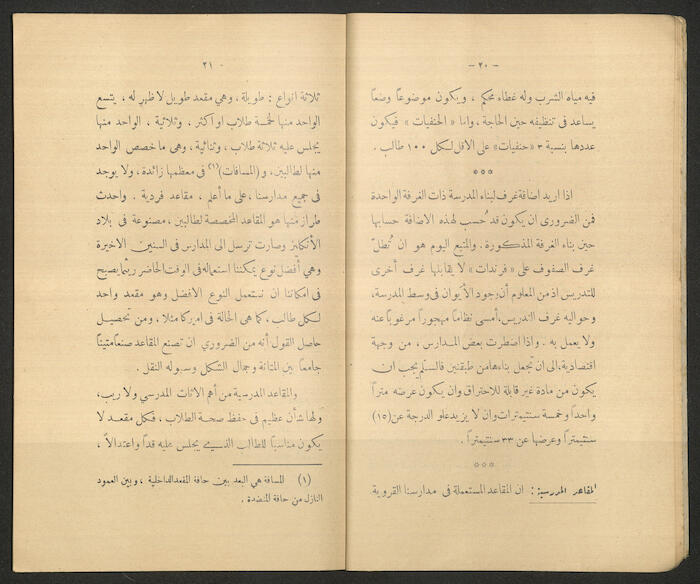 - ٢٠ -
فيه مياه الشرب وله غطاء محكم ، ويكون موضوعاً وضعاً
يساعد في تنظيفه حين الحاجة ، واما « الحنفيات » فيكون
عددها بنسبة ٣ « حنفيات » على الاقل لكل ١٠٠ طالب .
***
اذا اريد اضافة غرف لبناء المدرسة ذات الغرفة الواحدة
فمن الضرورى ان يكون قد حُسب لهذه الاضافة حسابها
حين بناء الغرفة المذكورة . والمتبع اليوم هو ان تُطلّ
غرف الصفوف على « فرندات » لا يقابلها غرف أخرى
للتدريس اذ من المعلوم أن وجود الأيوان فى وسط المدرسة،
وحواليه غرف التدريس، أمسى نظاماً مهجوراً مرغوباً عنه
ولا يعمل به . واذا اضطرت بعض المدارس ، من وجهة
اقتصادية، الى ان تجعل بناءها من طبقتين فالسلّم يجب ان
يكون من مادة غير قابلة للاحتراق وان يكون عرضه متراً
واحداً وخمسة سنتيمترات وان لا يزيد علو الدرجة عن (١٥)
سنتيمتراً وعرضها عن ٣٣ سنتيمتراً .
***
المقاعد المدرسية : ان المقاعد المستعملة فى مدارسنا القروية
- ٢١
ثلاثة انواع : طويلة ، وهي مقعد طويل لا ظهر له ، يتسع
الواحد منها لخمسة طلاب او أكثر ، وثلاثية ، الواحد منها
يجلس عليه ثلاثة طلاب ، وثنائية ، وهى ما خصص الواحد
منها لطالبين ، و (المسافات) (١) فى معظمها زائدة ، ولا يوجد
فى جميع مدارسنا ، على ما أعلم ، مقاعد فردية . واحدث
طراز منها هو المقاعد المخصصة لطالبين ، مصنوعة فى بلاد
الأنكليز وصارت ترسل الى المدارس فى السنين الاخيرة
وهى أفضل نوع يمكننا استعماله فى الوقت الحاضر ريثما يصبح
فى امكاننا ان نستعمل النوع الافضل وهو مقعد واحد
لكل طالب ، كما هى الحالة فى اميركا مثلا ، ومن تحصيل
حاصل القول أنه من الضروري ان تصنع المقاعد صنعاً متيناً
جامعاً بين المتانة وجمال الشكل وسهولة النقل .
والمقاعد المدرسية من أهم الاثاث المدرسي ولا ريب،
ولها شأن عظيم فى حفظ صحة الطلاب ، فكل مقعد لا
يكون مناسباً للطالب الذي يجلس عليه قداً واعتدالاً ،
(١) المسافة هي البعد بين حافة المقعد الداخلية ، وبين العمود
النازل من حافة المنضدة .